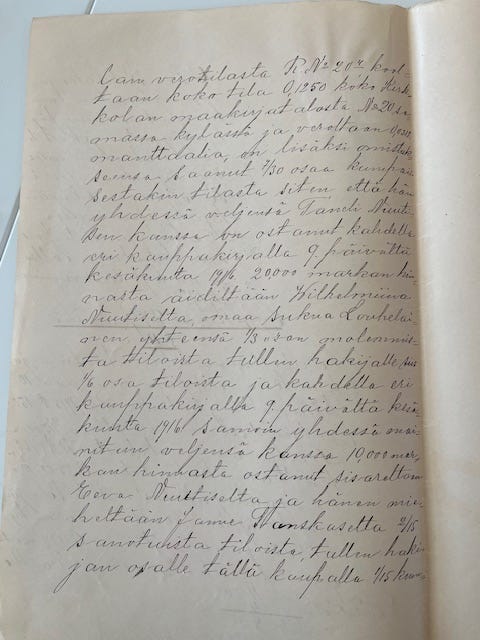 lan verotilasta R.No 20⁴ koo-
taan koko tila 0,1250 koko Kirk-
kolan maakirjatalosta No 20 sa-
massa kylässä ja verollaan 0,
manttaalia, on lisäksi omistuk-
seensa saanut 7/30 osaa kumpai-
sestakin tilasta siten että hän
yhdessä veljensä Taneli Nuuti-
sen kanssa on ostanut kahdella
eri kauppakirjalla 9. päivältä
kesäkuuta 1916 20,000 markan hin-
nasta äidiltään Wilhelmiina
Nuutisetta, omaa sukua Louhelai-
nen yhteensä 1/3 osan molemmis-
ta tiloista tullen hakijalle siis
1/6 osa tiloista ja kahdella eri
kauppakirjalla 9. päivältä kesä-
kuuta 1916 samoin yhdessä mai-
nitun veljensä kanssa 10,000 mar-
kan hinnasta ostanut sisareltaan
Eeva Nuutiselta ja hänen mie-
heltään Janne Hanskasetta 2/15
sanotuista tiloista, tullen haki-
jan osalle tällä kaupalla 1/15 kum-